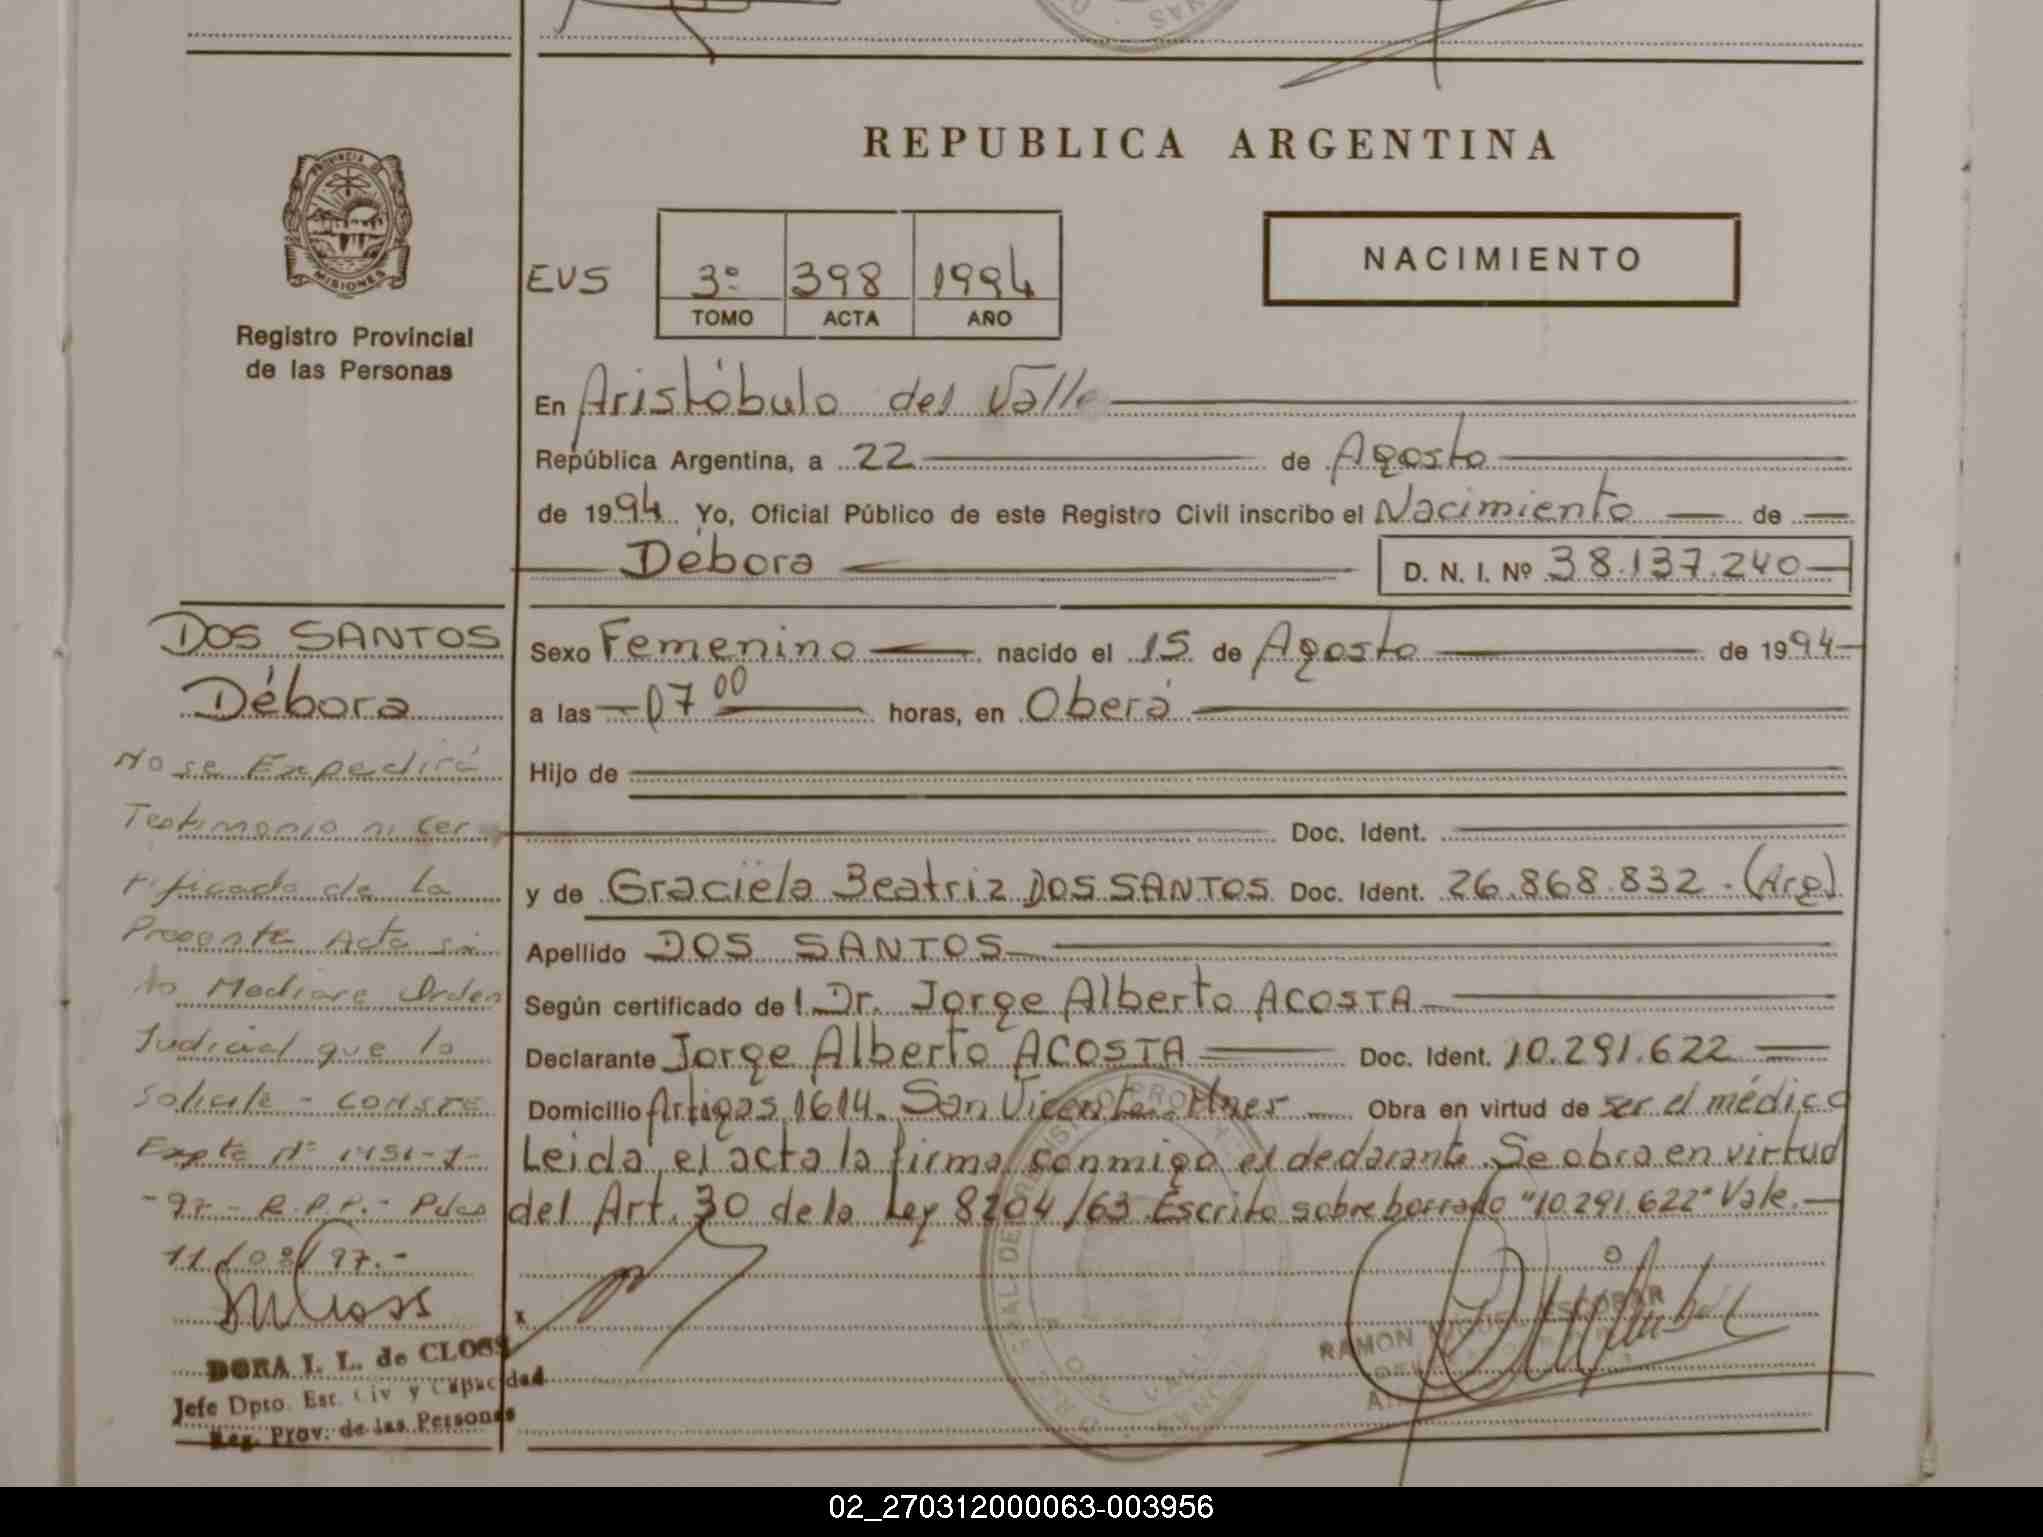 REPUBLICA ARGENTINA
PROVINCIA DE
MISIONES
Registro Provincial
de las Personas
EVS
3º 398 1994
TOMO ACTA AÑO
NACIMIENTO
En Aristóbulo del Valle
República Argentina, a 22 de Agosto
de 1994 Yo, Oficial Público de este Registro Civil inscribo el Nacimiento de
Débora D. N. I. Nº 38.137.240
DOS SANTOS
Débora
No se Expedirá
Testimonio ni Cer
tificado de la
Presente Acta si
no Mediare Orden
Judicial que lo
Solicite - CONSTE
Expte Nº 1451-J-
-97- R.P.P.- Pdas
11/03/97.-
DORA I. L. de CLOSS
Jefe Dpto. Est. Civ y Capacidad
Reg. Prov. de las Personas
Sexo Femenino nacido el 15 de Agosto de 1994
a las 07 00 horas, en Oberá
Hijo de
Doc. Ident.
y de Graciela Beatriz DOS SANTOS Doc. Ident. 26.868.832.(Arg)
Apellido DOS SANTOS
Según certificado de l Dr. Jorge Alberto ACOSTA
Declarante Jorge Alberto ACOSTA Doc. Ident. 10.291.622
Domicilio Artigas 1614. San Vicente. Mnes Obra en virtud de ser el médico
Leida el acta la firma conmigo el declarante. Se obra en virtud
del Art. 30 de la Ley 8204/63 Escrito sobre borrado "10.291.622" Vale.
x
RAMON MIGUEL ESCOBAR
02_270312000063-003956